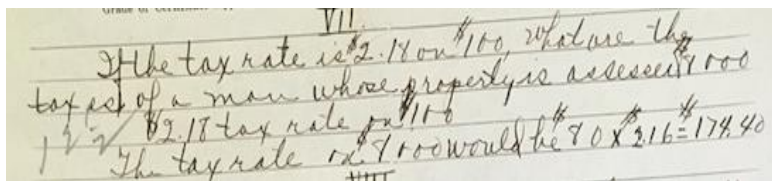 VII.
If the tax rate is $2.18 on $100, what are the
taxes of a man whose property is assessed $8000
$2.18 tax rate on $100
The tax rate on $8000 would be $80 x $2.16 = $174.40